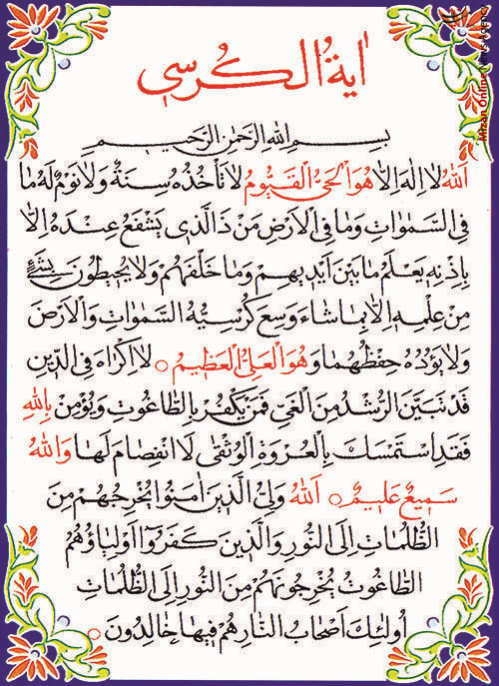 اٰیةُ الکُرسی
بِسمِ اللهِ الرَّحمٰنِ الرَّحیمِ
اَللهُ لا اِلٰهَ اِلاّٰ هُوَ الْحَیُّ الْقَیُّومُ لا تَأْخُذُهُ سِنَةٌ وَلا نَوْمٌ لَهُ مٰا
فِی السَّمٰوٰاتِ وَمٰا فِی الْاَرْضِ مَنْ ذَا الَّذی یَشْفَعُ عِنْدَهُ اِلاّٰ
بِاِذْنِهِ یَعْلَمُ مٰا بَیْنَ اَیْدیهِمْ وَمٰا خَلْفَهُمْ وَلا یُحیطُونَ بِشَیْءٍ
مِنْ عِلْمِهِ اِلاّٰ بِمٰا شٰاءَ وَسِعَ کُرْسِیُّهُ السَّمٰوٰاتِ وَالْاَرْضَ
وَلا یَؤُدُهُ حِفْظُهُمٰا وَ هُوَ الْعَلِیُّ الْعَظیمُ ○ لا اِکْرٰاهَ فِی الدّینِ
قَدْ تَبَیَّنَ الرُّشْدُ مِنَ الْغَیِّ فَمَنْ یَکْفُرْ بِالطّٰاغُوتِ وَیُؤْمِنْ بِاللهِ
فَقَدِ اسْتَمْسَكَ بِالْعُرْوَةِ الْوُثْقیٰ لَا انْفِصٰامَ لَهٰا وَاللهُ
سَمیعٌ عَلیمٌ ○ اَللهُ وَلِیُّ الَّذینَ اٰمَنُوا یُخْرِجُهُمْ مِنَ
الظُّلُمٰاتِ اِلَی النُّورِ وَالَّذینَ کَفَرُوٓا اَوْلِیٰاؤُهُمُ
الطّٰاغُوتُ یُخْرِجُونَهُمْ مِنَ النُّورِ اِلَی الظُّلُمٰاتِ
اُولٰئِكَ اَصْحٰابُ النّٰارِ هُمْ فیهٰا خٰالِدُونَ ○
Mizan Online